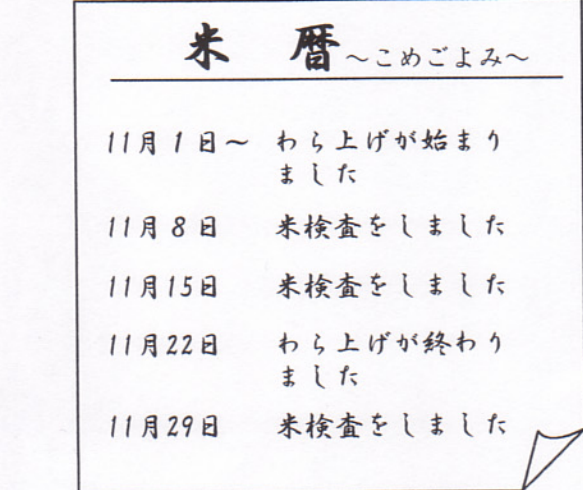 米 暦 ～こめごよみ～
11月1日～ わら上げが始まり
ました
11月8日 米検査をしました
11月15日 米検査をしました
11月22日 わら上げが終わり
ました
11月29日 米検査をしました